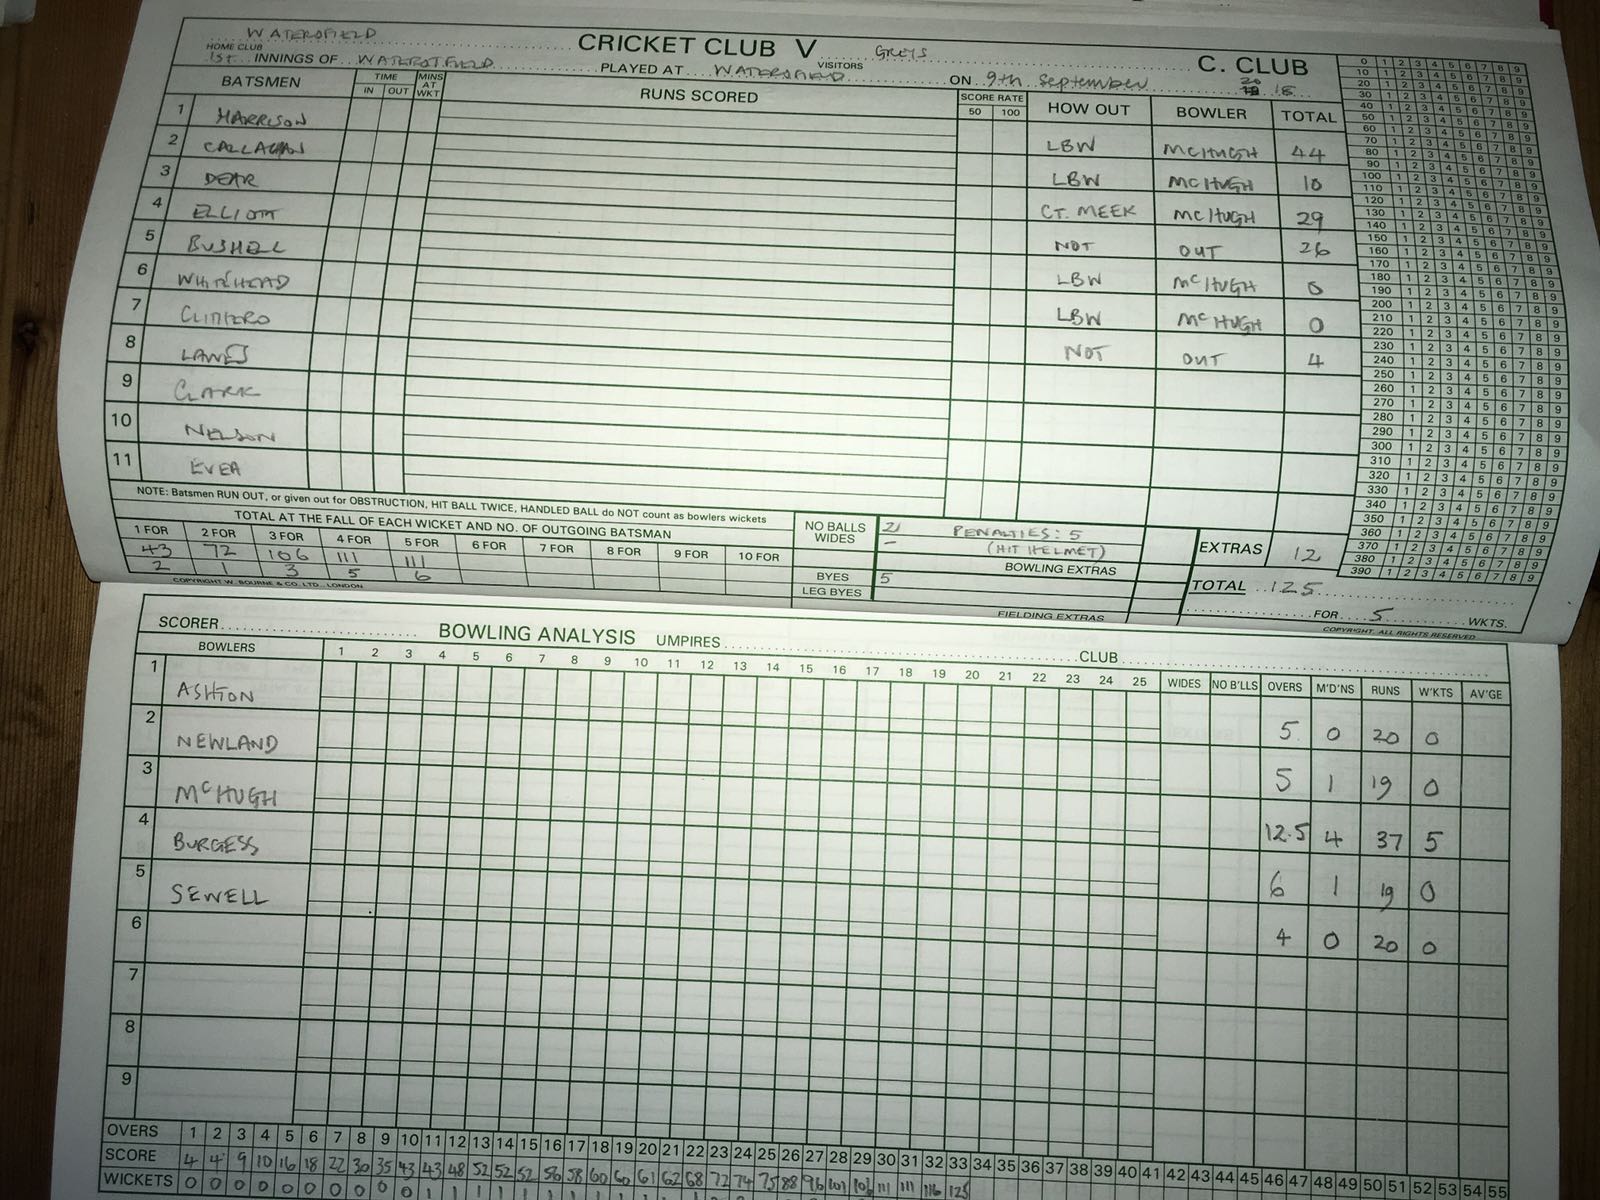 WATERSFIELD CRICKET CLUB V GREYS C. CLUB
HOME CLUB VISITORS
1st INNINGS OF PLAYED AT WATERSFIELD ON 9th September 20 18
BATSMEN TIME IN OUT MINS AT WKT RUNS SCORED SCORE RATE 50 100 HOW OUT BOWLER TOTAL
1 HARRISON LBW MCHUGH 44
2 CALLAGHAN LBW MCHUGH 10
3 DEAR CT. MEEK MCHUGH 29
4 ELLIOTT NOT OUT 26
5 BUSHELL LBW MCHUGH 0
6 WHITEHEAD LBW MCHUGH 0
7 NOT OUT 4
8 LAWES
9 CLARK
10 NELSON
11 EVEA
NOTE: Batsmen RUN OUT, or given out for OBSTRUCTION, HIT BALL TWICE, HANDLED BALL do NOT count as bowlers wickets
TOTAL AT THE FALL OF EACH WICKET AND NO. OF OUTGOING BATSMAN
1 FOR 2 FOR 3 FOR 4 FOR 5 FOR 6 FOR 7 FOR 8 FOR 9 FOR 10 FOR
43 72 106 111 111
2 1 3 5 6
NO BALLS 2 PENALTIES: 5
WIDES - (HIT HELMET)
BOWLING EXTRAS
BYES 5
LEG BYES
FIELDING EXTRAS
EXTRAS 12
TOTAL 125
FOR 5 WKTS.
COPYRIGHT W. BOURNE & CO. LTD., LONDON
COPYRIGHT. ALL RIGHTS RESERVED
0 1 2 3 4 5 6 7 8 9
10 1 2 3 4 5 6 7 8 9
20 1 2 3 4 5 6 7 8 9
30 1 2 3 4 5 6 7 8 9
40 1 2 3 4 5 6 7 8 9
50 1 2 3 4 5 6 7 8 9
60 1 2 3 4 5 6 7 8 9
70 1 2 3 4 5 6 7 8 9
80 1 2 3 4 5 6 7 8 9
90 1 2 3 4 5 6 7 8 9
100 1 2 3 4 5 6 7 8 9
110 1 2 3 4 5 6 7 8 9
120 1 2 3 4 5 6 7 8 9
130 1 2 3 4 5 6 7 8 9
140 1 2 3 4 5 6 7 8 9
150 1 2 3 4 5 6 7 8 9
160 1 2 3 4 5 6 7 8 9
170 1 2 3 4 5 6 7 8 9
180 1 2 3 4 5 6 7 8 9
190 1 2 3 4 5 6 7 8 9
200 1 2 3 4 5 6 7 8 9
210 1 2 3 4 5 6 7 8 9
220 1 2 3 4 5 6 7 8 9
230 1 2 3 4 5 6 7 8 9
240 1 2 3 4 5 6 7 8 9
250 1 2 3 4 5 6 7 8 9
260 1 2 3 4 5 6 7 8 9
270 1 2 3 4 5 6 7 8 9
280 1 2 3 4 5 6 7 8 9
290 1 2 3 4 5 6 7 8 9
300 1 2 3 4 5 6 7 8 9
310 1 2 3 4 5 6 7 8 9
320 1 2 3 4 5 6 7 8 9
330 1 2 3 4 5 6 7 8 9
340 1 2 3 4 5 6 7 8 9
350 1 2 3 4 5 6 7 8 9
360 1 2 3 4 5 6 7 8 9
370 1 2 3 4 5 6 7 8 9
380 1 2 3 4 5 6 7 8 9
390 1 2 3 4 5 6 7 8 9
SCORER BOWLING ANALYSIS UMPIRES CLUB
BOWLERS 1 2 3 4 5 6 7 8 9 10 11 12 13 14 15 16 17 18 19 20 21 22 23 24 25 WIDES NO B'LLS OVERS M'D'NS RUNS W'KTS AV'GE
1 ASHTON 5 0 20 0
2 NEWLAND 5 1 19 0
3 McHUGH 12.5 4 37 5
4 BURGESS 6 1 19 0
5 SEWELL 4 0 20 0
6
7
8
9
OVERS 1 2 3 4 5 6 7 8 9 10 11 12 13 14 15 16 17 18 19 20 21 22 23 24 25 26 27 28 29 30 31 32 33 34 35 36 37 38 39 40 41 42 43 44 45 46 47 48 49 50 51 52 53 54 55
SCORE 4 4 9 10 16 18 22 30 35 43 43 48 52 52 52 56 58 60 60 61 62 68 72 74 75 88 96 101 106 111 111 116 125
WICKETS 0 0 0 0 0 0 0 0 0 0 1 1 1 1 1 1 1 1